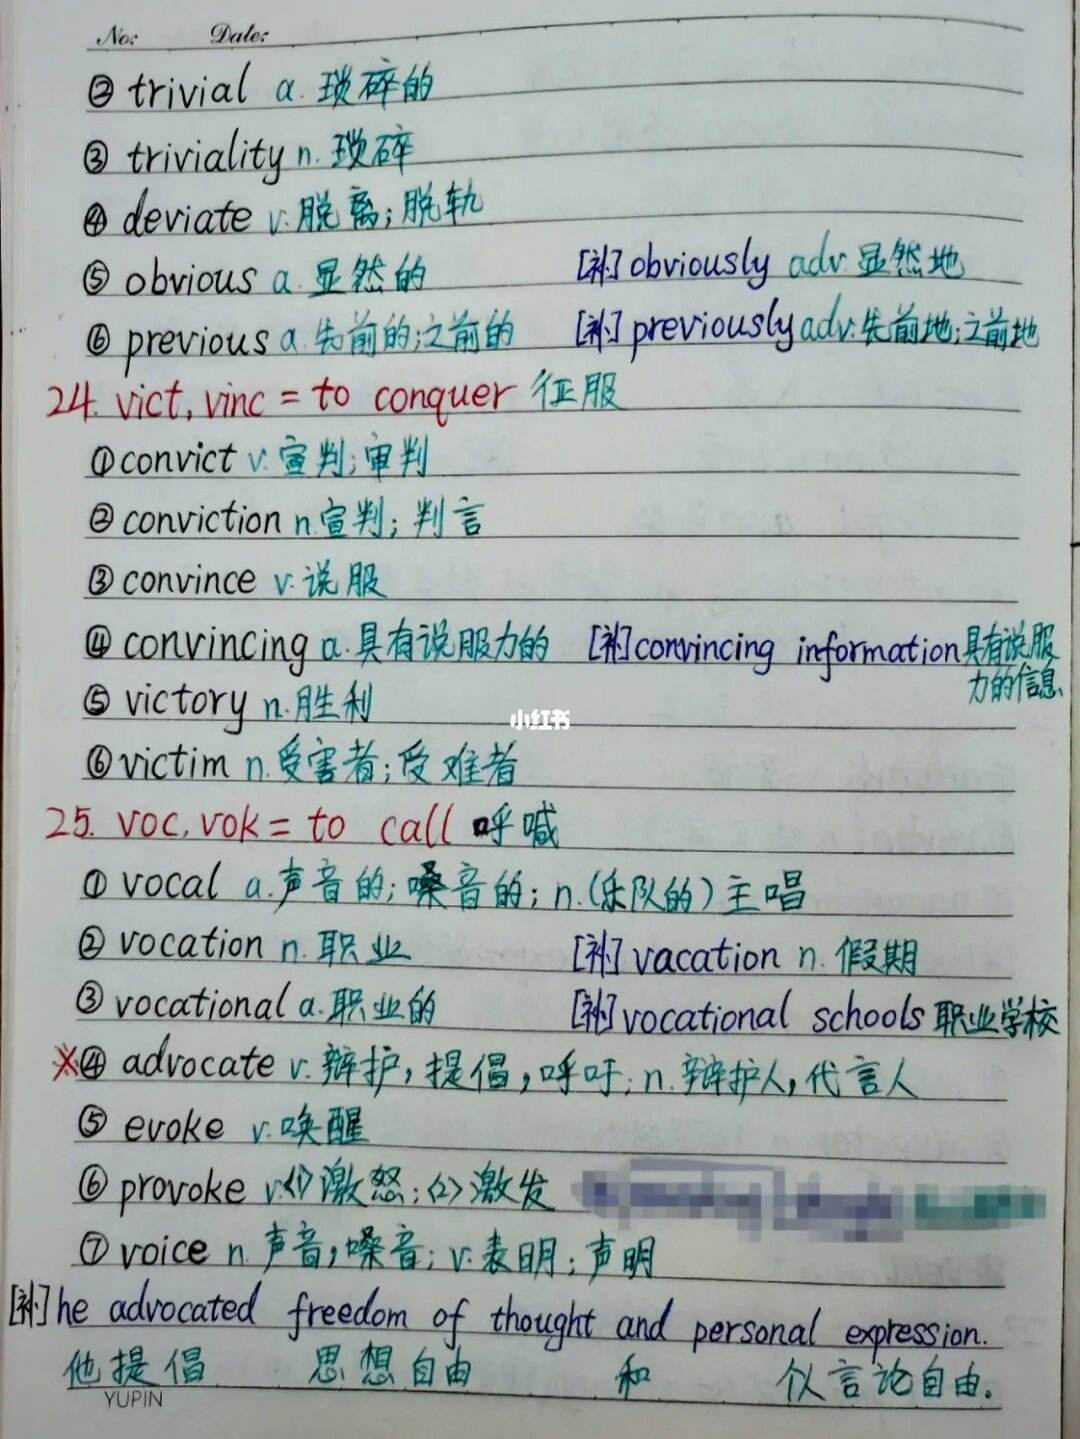 No: Date:
② trivial a. 琐碎的
③ triviality n. 琐碎
④ deviate v. 脱离; 脱轨
⑤ obvious a. 显然的 [补] obviously adv. 显然地
⑥ previous a. 先前的; 之前的 [补] previously adv. 先前地; 之前地
24. vict, vinc = to conquer 征服
① convict v. 宣判; 审判
② conviction n. 宣判; 判言
③ convince v. 说服
④ convincing a. 具有说服力的 [补] convincing information 具有说服
力的信息.
⑤ victory n. 胜利
小红书
⑥ victim n. 受害者; 受难者
25. voc, vok = to call 呼喊
① vocal a. 声音的; 嗓音的; n. (乐队的) 主唱
② vocation n. 职业 [补] vacation n. 假期
③ vocational a. 职业的 [补] vocational schools 职业学校
※④ advocate v. 辩护, 提倡, 呼吁; n. 辩护人, 代言人
⑤ evoke v. 唤醒
⑥ provoke v. <1> 激怒; <2> 激发
⑦ voice n. 声音, 嗓音; v. 表明; 声明
[补] he advocated freedom of thought and personal expression.
他提倡 思想自由 和 个人言论自由.
YUPIN